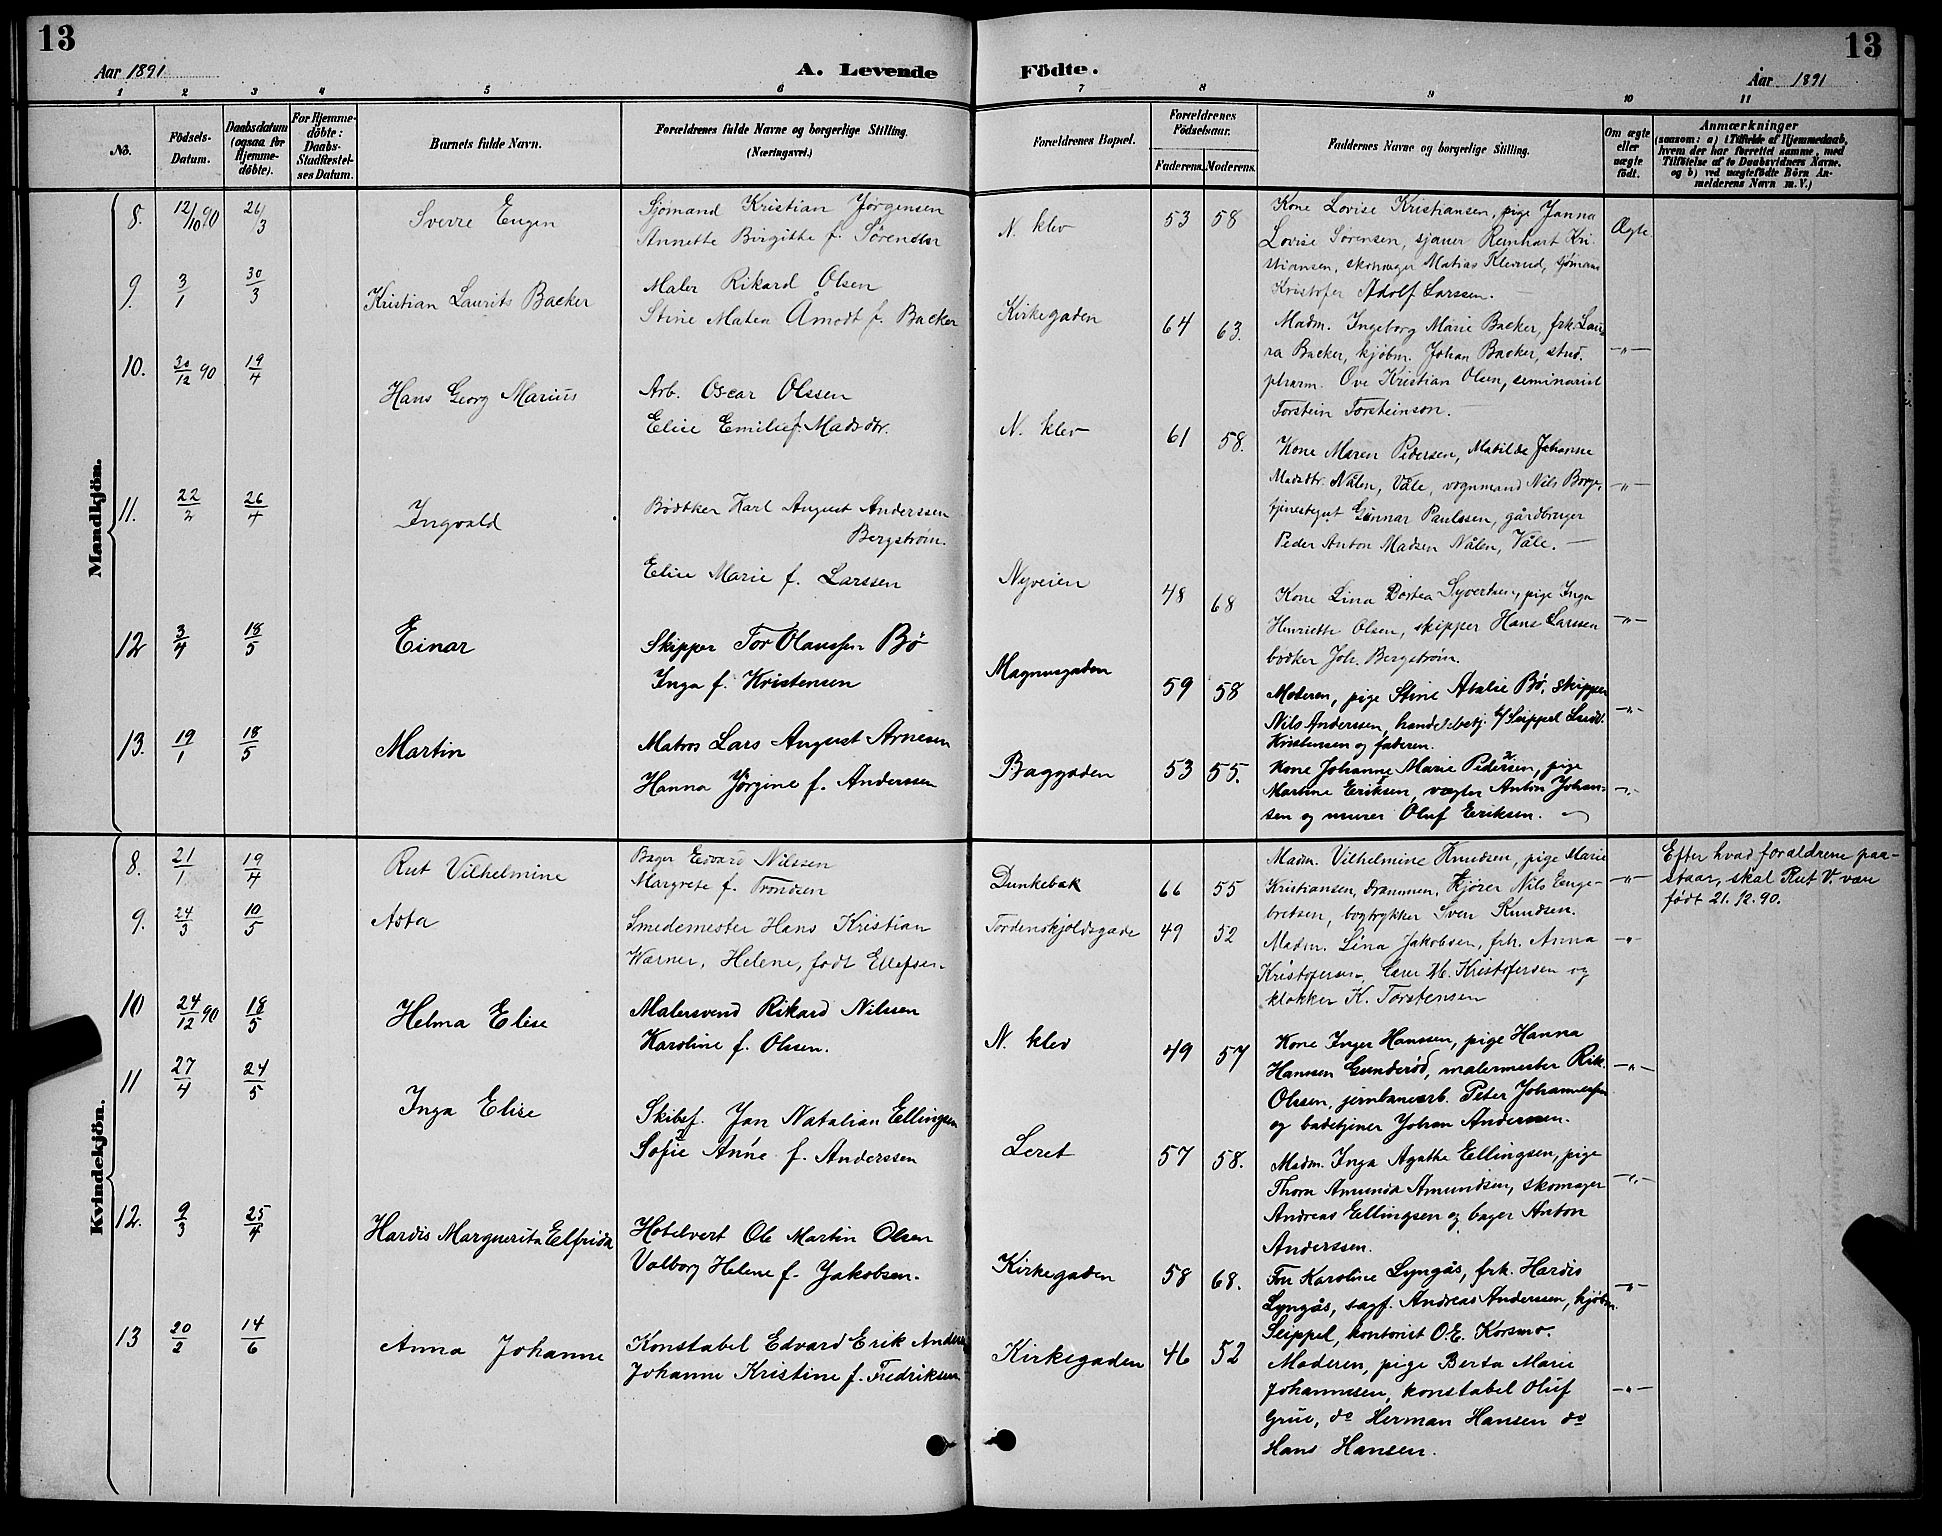 13
13
Aar 1891
A. Levende Födte.
Aar 1891
1 2 3 4 5 6 7 8 9 10 11
No.
Födsels-Datum.
Daabsdatum (ogsaa for Hjemmedöbte).
For Hjemmedöbte: Daabs-Stadfæstelses Datum.
Barnets fulde Navn.
Forældrenes fulde Navne og borgerlige Stilling. (Næringsvei.)
Forældrenes Bopæl.
Forældrenes Födselsaar.
Faderens. Moderens.
Faddernes Navne og borgerlige Stilling.
Om ægte eller uægte födt.
Anmærkninger
(saasom: a) i Tilfælde af Hjemmedaab,
hvem der har forrettet samme, med
Tilföielse af to Daabsvidners Navne,
og b) ved uægtefödte Börn An-
melderens Navn m. V.)
Mandkjön.
8. 12/10 90 26/3 Sverre Eugen
Sjømand Kristian Jørgensen
Annette Birgitte f. Sørensen
N. klev 53 58
Kone Lovise Kristiansen, pige Janna
Lovise Sørensen, sjauer Reinhart Kri-
stiansen, skomager Matias Klevrud, sjømand
Kristofer Adolf Larssen.
Ægte
9. 3/1 30/3 Kristian Laurits Backer
Maler Rikard Olsen
Stine Matea Åmodt f. Backer
Kirkegaden 64 63.
Madm. Ingeborg Marie Backer, frk. Lau-
ra Backer, kjøbm. Johan Backer, stud.
pharm. Ove Kristian Olsen, seminarist
Torstein Torsteinson.
—"—
10. 30/12 90 19/4 Hans Georg Marius
Arb. Oscar Olssen
Elise Emilie f. Madsdtr.
N. klev 61 58.
Kone Maren Pedersen, Matilde Johanne
Madsdtr. Nålen, Våle, vognmand Nils Borge,
tjenestegut Gunnar Paulssen, gårdbruger
Peder Anton Madsen Nålen, Våle.
—"—
11. 22/2 26/4 Ingvald
Bødtker Karl August Anderssen
Bergstrøm.
Elise Marie f. Larssen
Nyveien 48 68
Kone Lina Dortea Syvertsen, pige Inga
Henriette Olsen, skipper Hans Larssen
bødker Joh. Bergstrøm.
—"—
12 3/4 18/5 Einar
Skipper Tor Olaussen Bø
Inga f. Kristensen
Magnusgaden 59 58
Moderen, pige Stine Atalie Bø, skipper
Nils Anderssen, handelsbetj. Seippel Ludv.
Kristensen og faderen.
—"—
13. 19/1 18/5 Martin
Matros Lars August Arnesen
Hanna Jørgine f. Anderssen
Baggaden 53 55.
Kone Johanne Marie Pedersen, pige
Martine Eriksen, vægter Anton Johan-
sen og murer Oluf Eriksen.
—"—
Kvindekjön.
8. 21/1 19/4 Rut Vilhelmine
Bager Edvard Nilssen
Margrete f. Trondsen
Dunkebæk 66 55
Madm. Vilhelmine Knudsen, pige Marie
Kristiansen, Drammen, Kjører Nils Enge-
bretsen, bogtrykker Sven Knudsen.
—"—
Efter hvad forældrene paa-
staar, skal Rut V. være
født 21.12.90.
9. 24/3 10/5 Asta
Smedemester Hans Kristian
Warner, Helene, født Ellefsen
Tordenskjoldsgade 49 52
Madm. Lina Jakobsen, frk. Anna
Kristofersen, Kristofersen og
klokker K. Torstensen
—"—
10 24/12 90 18/5 Helma Elise
Malersvend Rikard Nilssen
Karoline f. Olssen.
N. klev 49 57
Kone Inger Hanssen, pige Hanna
Hanssen Gunderød, malermester Rik.
Olssen, jernbanearb. Peter Johannessen
og badetjener Johan Anderssen.
—"—
11 27/4 24/5 Inga Elise
Skibsf. Jan Natalian Ellingsen
Sofie Anne f. Anderssen
Leret 57 58.
Madm. Inga Agathe Ellingsen, pige
Thora Amunda Amundsen, skomager
Andreas Ellingsen og bager Anton
Anderssen.
—"—
12. 9/3 25/4 Hardis Marguerita Elfrida
Hotelvert Ole Martin Olsen
Valborg Helene f. Jakobsen.
Kirkegaden 58 68.
Fru Karoline Lyngås, frk. Hardis
Lyngås, sagf. Andreas Anderssen, kjøbm.
Seippel, kontorist O.E. Korsmo.
—"—
13 20/2 14/6 Anna Johanne
Konstabel Edvard Erik Anders
Johanne Kristine f. Fredriksen
Kirkegaden 46 52
Moderen, pige Berta Marie
Johannesen, konstabel Oluf
Grue, do Herman Hansen do
Hans Hansen.
—"—